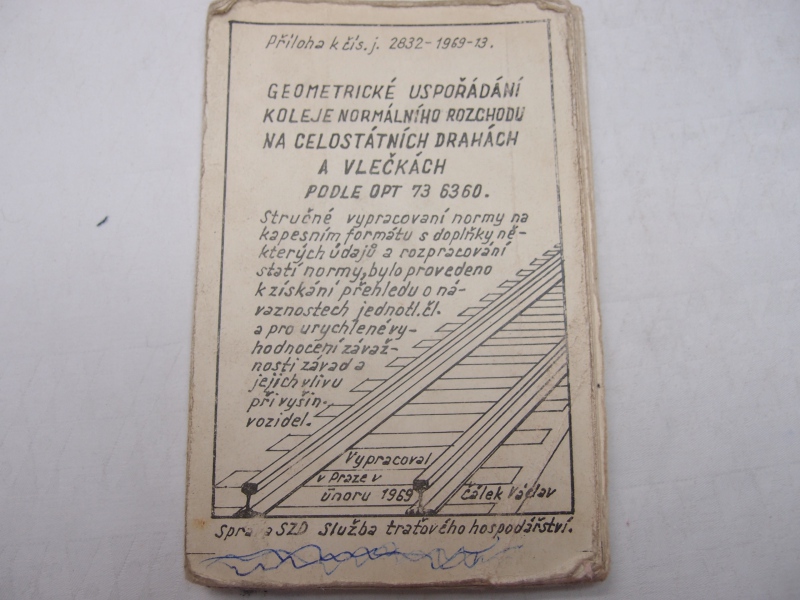 Příloha k čís. j. 2832-1969-13.
GEOMETRICKÉ USPOŘÁDÁNÍ
KOLEJE NORMÁLNÍHO ROZCHODU
NA CELOSTÁTNÍCH DRAHÁCH
A VLEČKÁCH
PODLE OPT 73 6360.
Stručné vypracovaní normy na
kapesním formátu s doplňky ně-
kterých údajů a rozpracování
statí normy, bylo provedeno
k získání přehledu o ná-
vaznostech jednotl. čl.
a pro urychlené vy-
hodnocení závaž-
nosti závad a
jejich vlivu
při vyšin.
vozidel.
Vypracoval
v Praze v
únoru 1969
Čálek Václav
SŽD Služba traťového hospodářství.